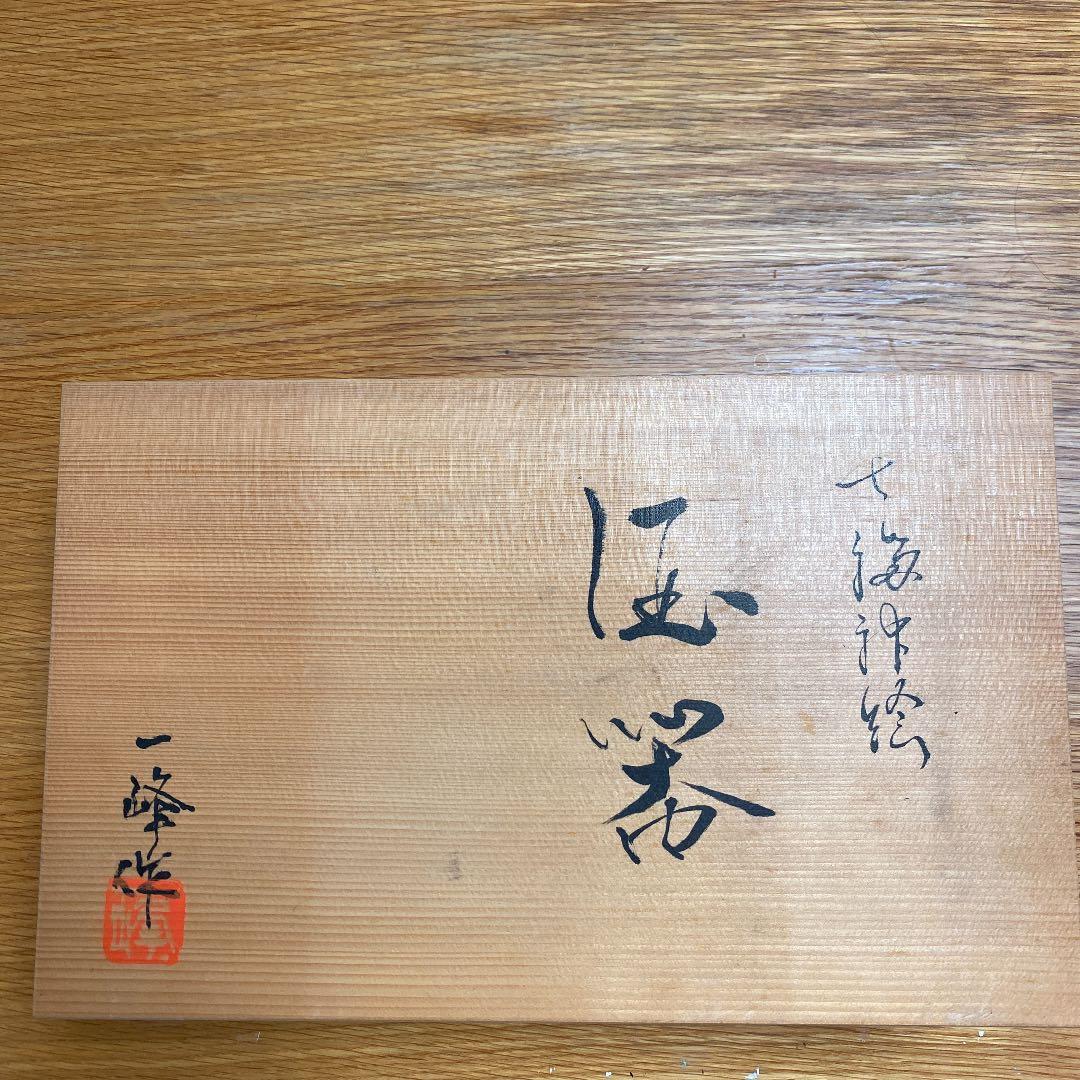 七福神絵
酒器
一峰作